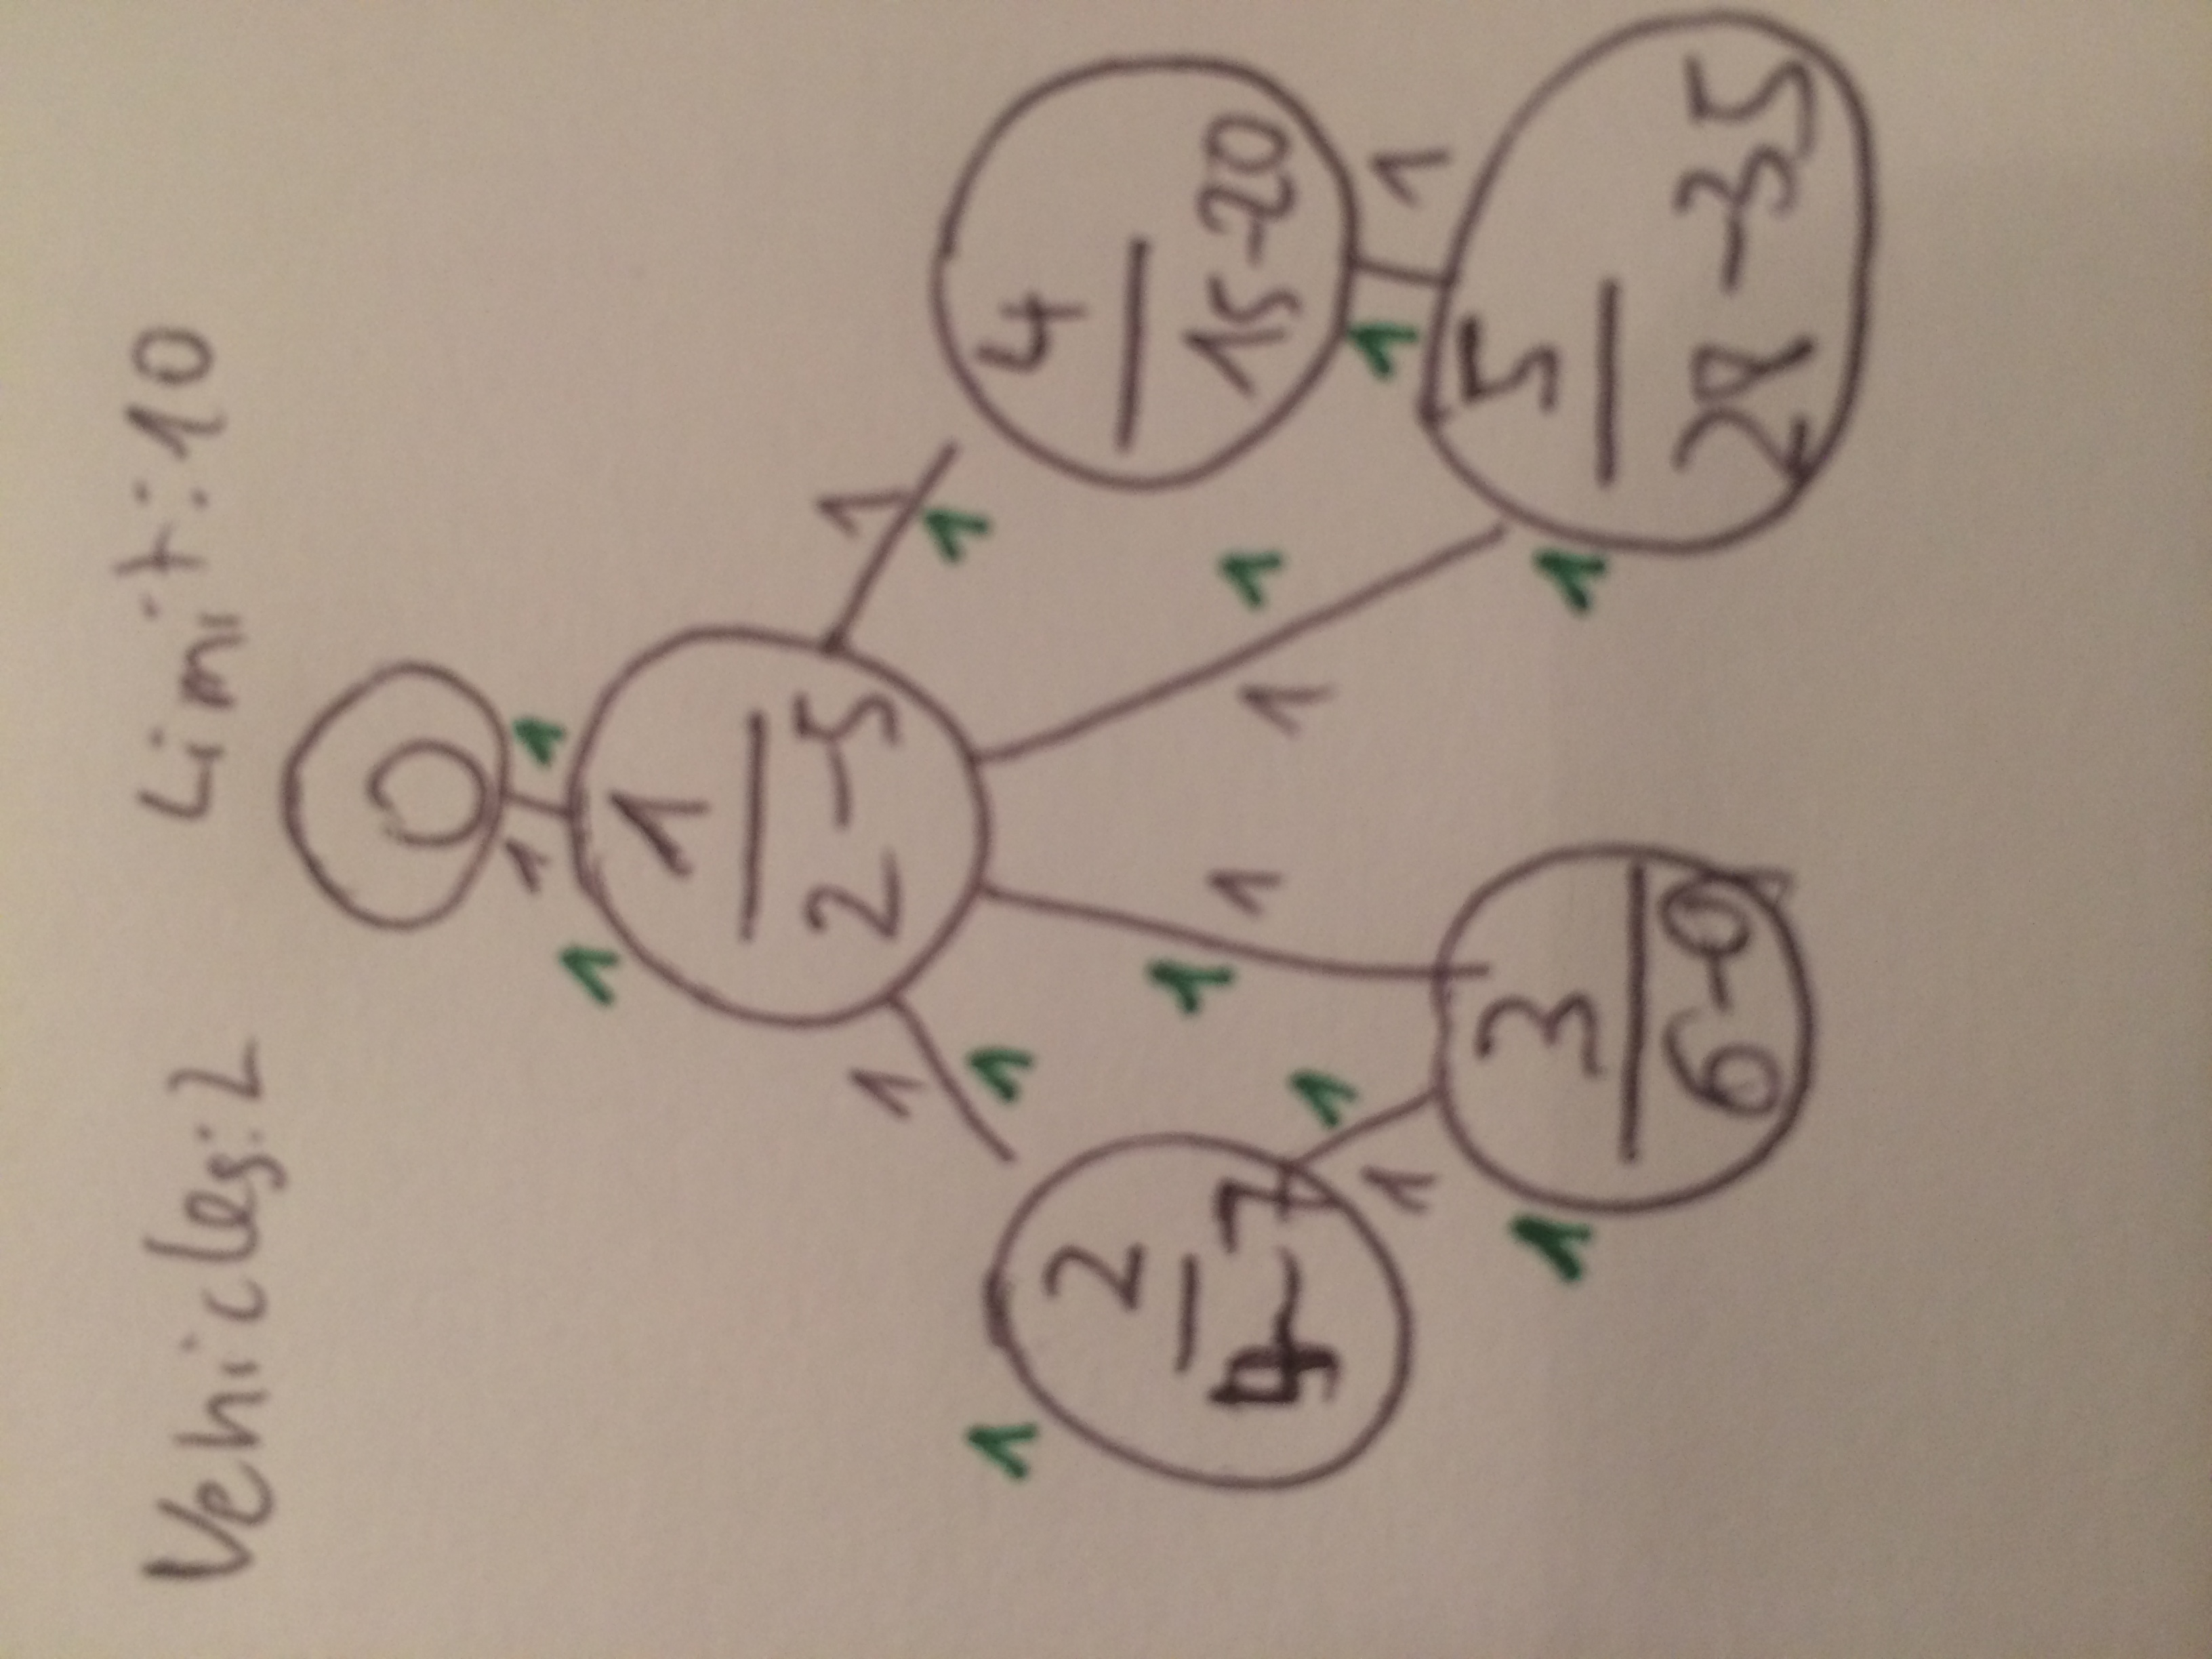 Vehicles: 2
Limit: 10
0
1 1
1
1
2-5
1 1
1 1
1
2
4
15-20
1 1 1 1
1 1
1 1
1
3
6-9
1
5
28-35